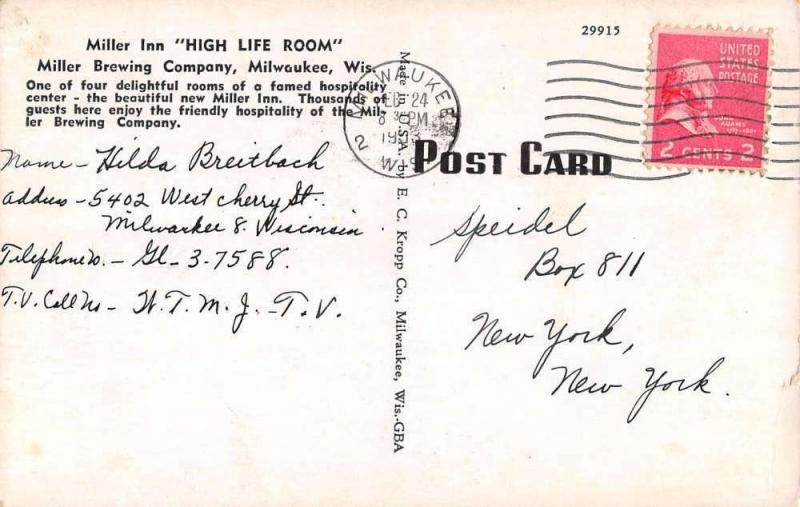 Miller Inn "HIGH LIFE ROOM"
Miller Brewing Company, Milwaukee, Wis.
One of four delightful rooms of a famed hospitality
center - the beautiful new Miller Inn. Thousands of
guests here enjoy the friendly hospitality of the Mil-
ler Brewing Company.
Name - Hilda Breitbach
address - 5402 West Cherry St.
Milwaukee 8. Wisconsin
Telephone No. - Gl - 3-7588.
T.V. Call No - W. T. M. J. - T. V.
Made in U.S.A. by E. C. Kropp Co., Milwaukee, Wis.-GBA
29915
MILWAUKEE
FEB 24
PM
WIS
2
UNITED
STATES
POSTAGE
JOHN
ADAMS
1797-1801
2 CENTS 2
POST CARD
Speidel
Box 811
New York,
New York.